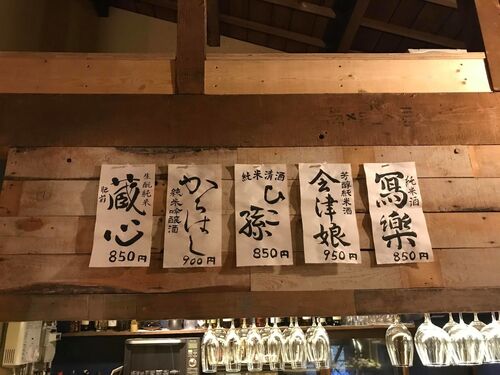 純米酒
寫樂
850円
芳醇純米酒
会津娘
950円
純米清酒
ひこ孫
850円
からはし
純米吟醸酒
900円
生酛純米
蔵心
肥前
850円